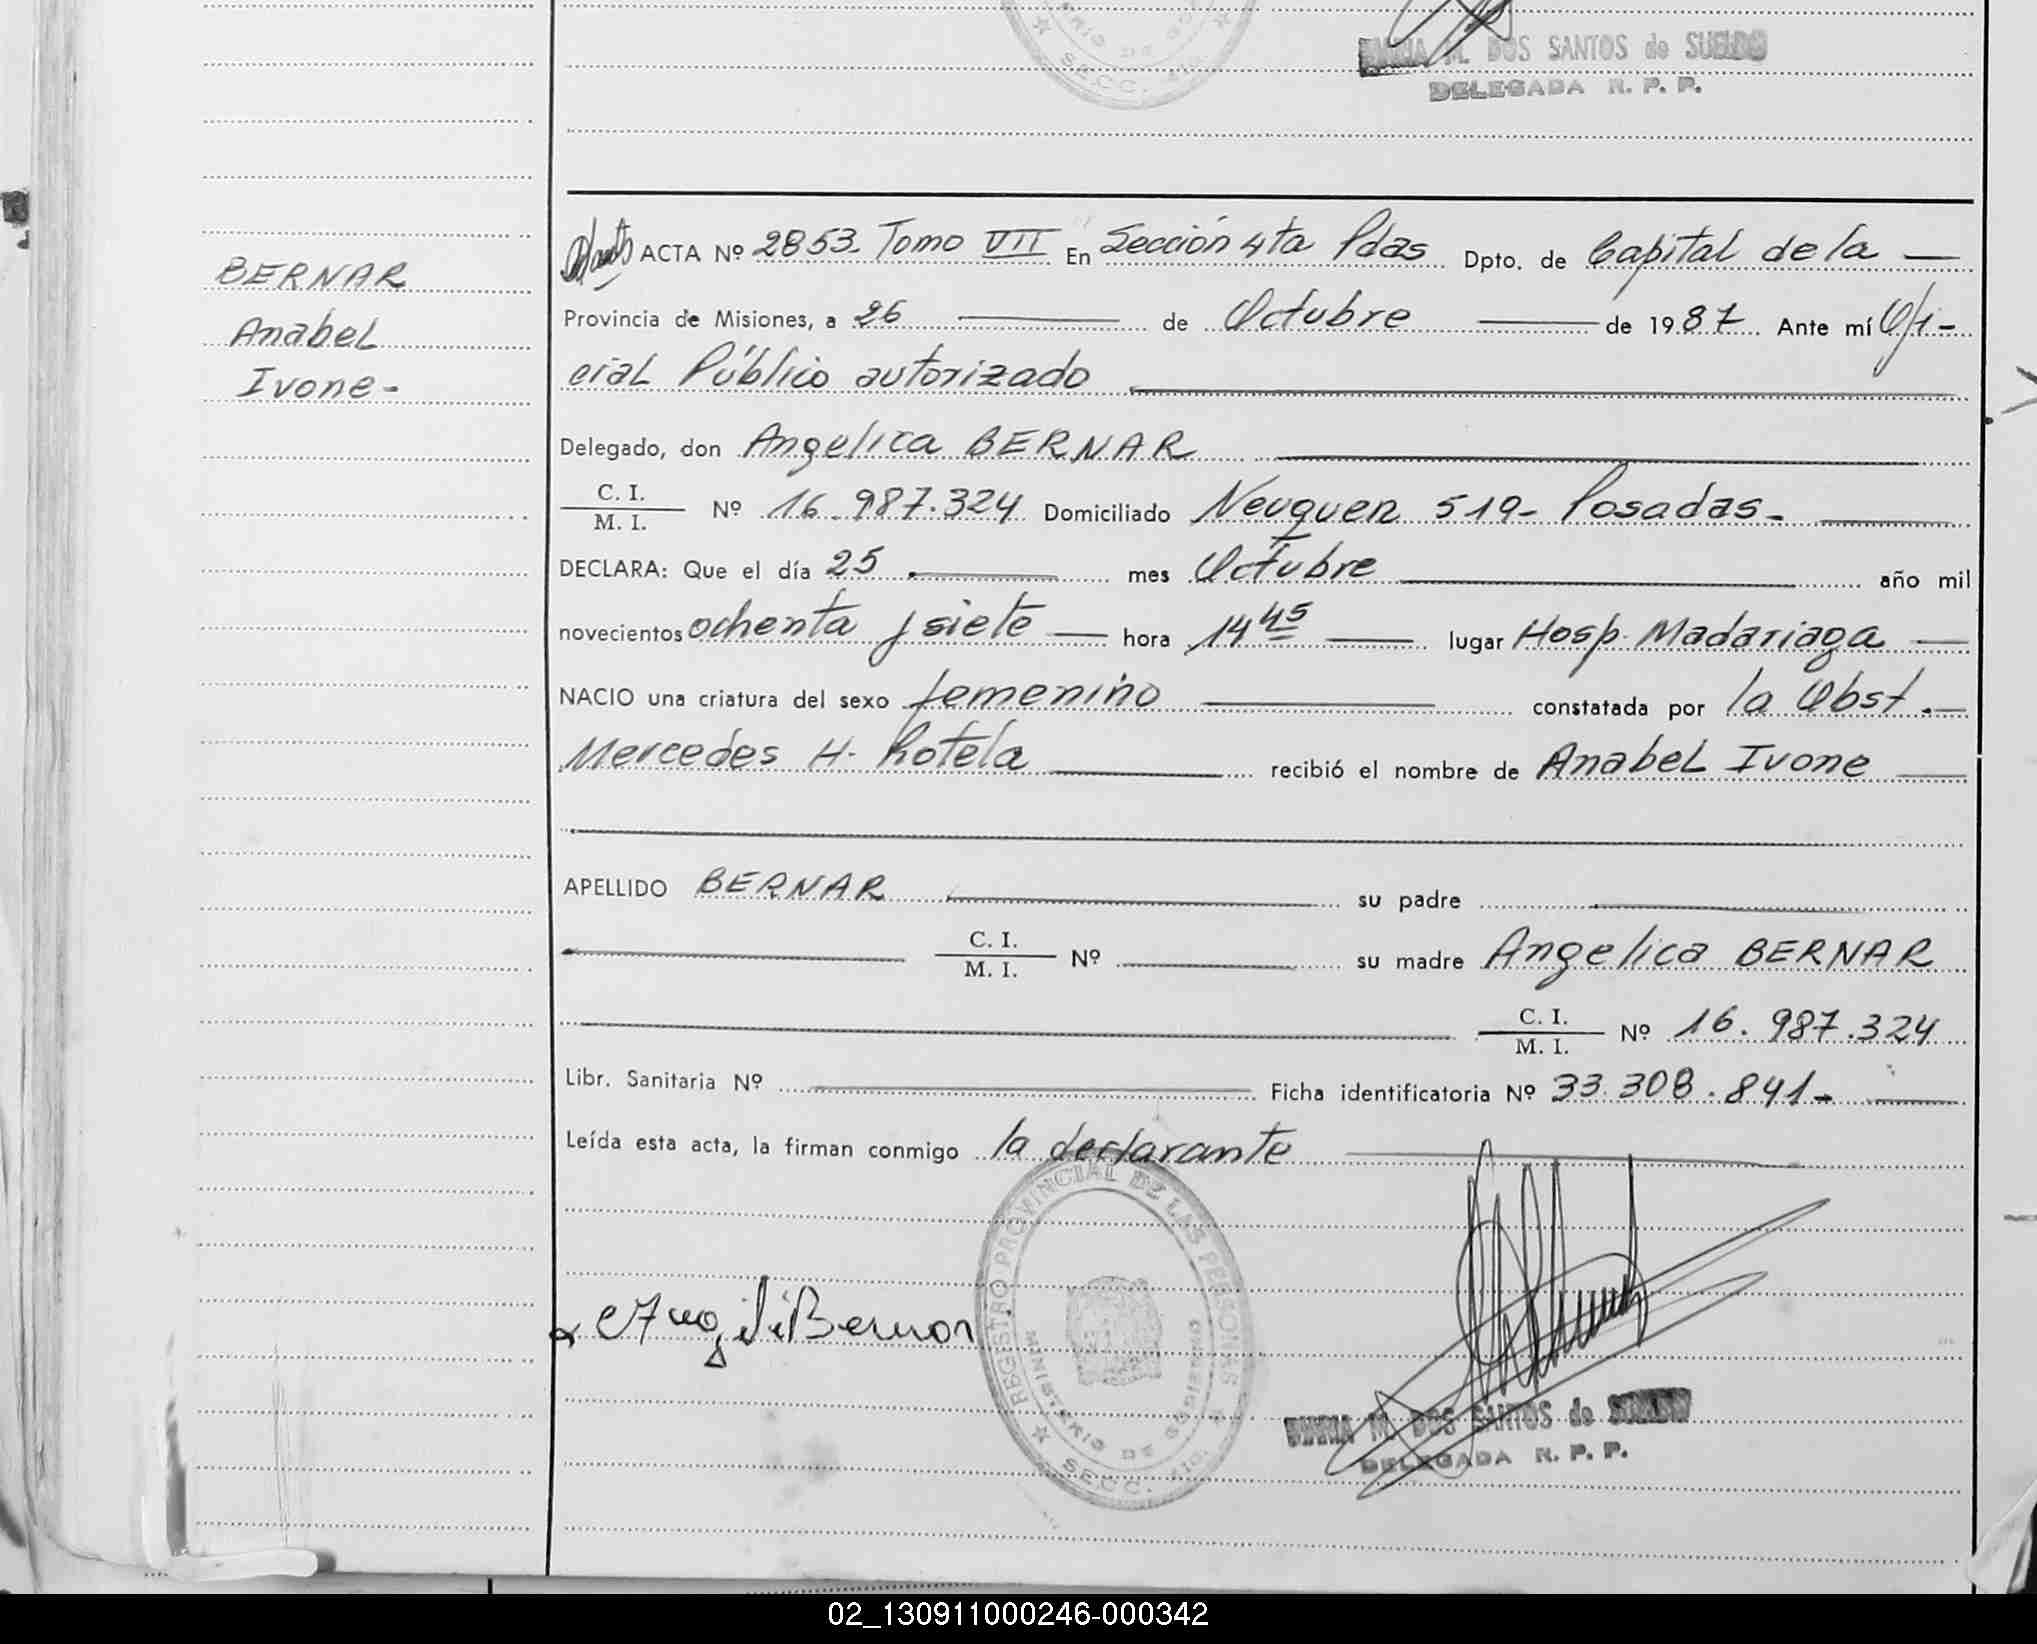 MARIA M. DOS SANTOS de SUELDO
DELEGADA R. P. P.
SECC. 4ta.
BERNAR
Anabel
Ivone-
ACTA Nº 2853 Tomo VII En Sección 4ta Pdas Dpto. de Capital de la —
Provincia de Misiones, a 26 — de Octubre — de 1987 Ante mí Ofi-
cial Público autorizado —
Delegado, don Angelica BERNAR —
C. I.
M. I. Nº 16.987.324 Domiciliado Neuquen 519- Posadas.- —
DECLARA: Que el día 25 — mes Octubre — año mil
novecientos ochenta y siete — hora 14 45 — lugar Hosp. Madariaga —
NACIO una criatura del sexo femenino — constatada por la Obst. —
Mercedes H. Rotela — recibió el nombre de Anabel Ivone —
APELLIDO BERNAR — su padre —
— C. I.
M. I. Nº — su madre Angelica BERNAR
— C. I.
M. I. Nº 16.987.324
Libr. Sanitaria Nº — Ficha identificatoria Nº 33.308.841- —
Leída esta acta, la firman conmigo la declarante —
REGISTRO PROVINCIAL DE LAS PERSONAS
MINISTERIO DE GOBIERNO
SECC. 4ta.
Bernar
MARIA M. DOS SANTOS de SUELDO
DELEGADA R. P. P.
02_130911000246-000342